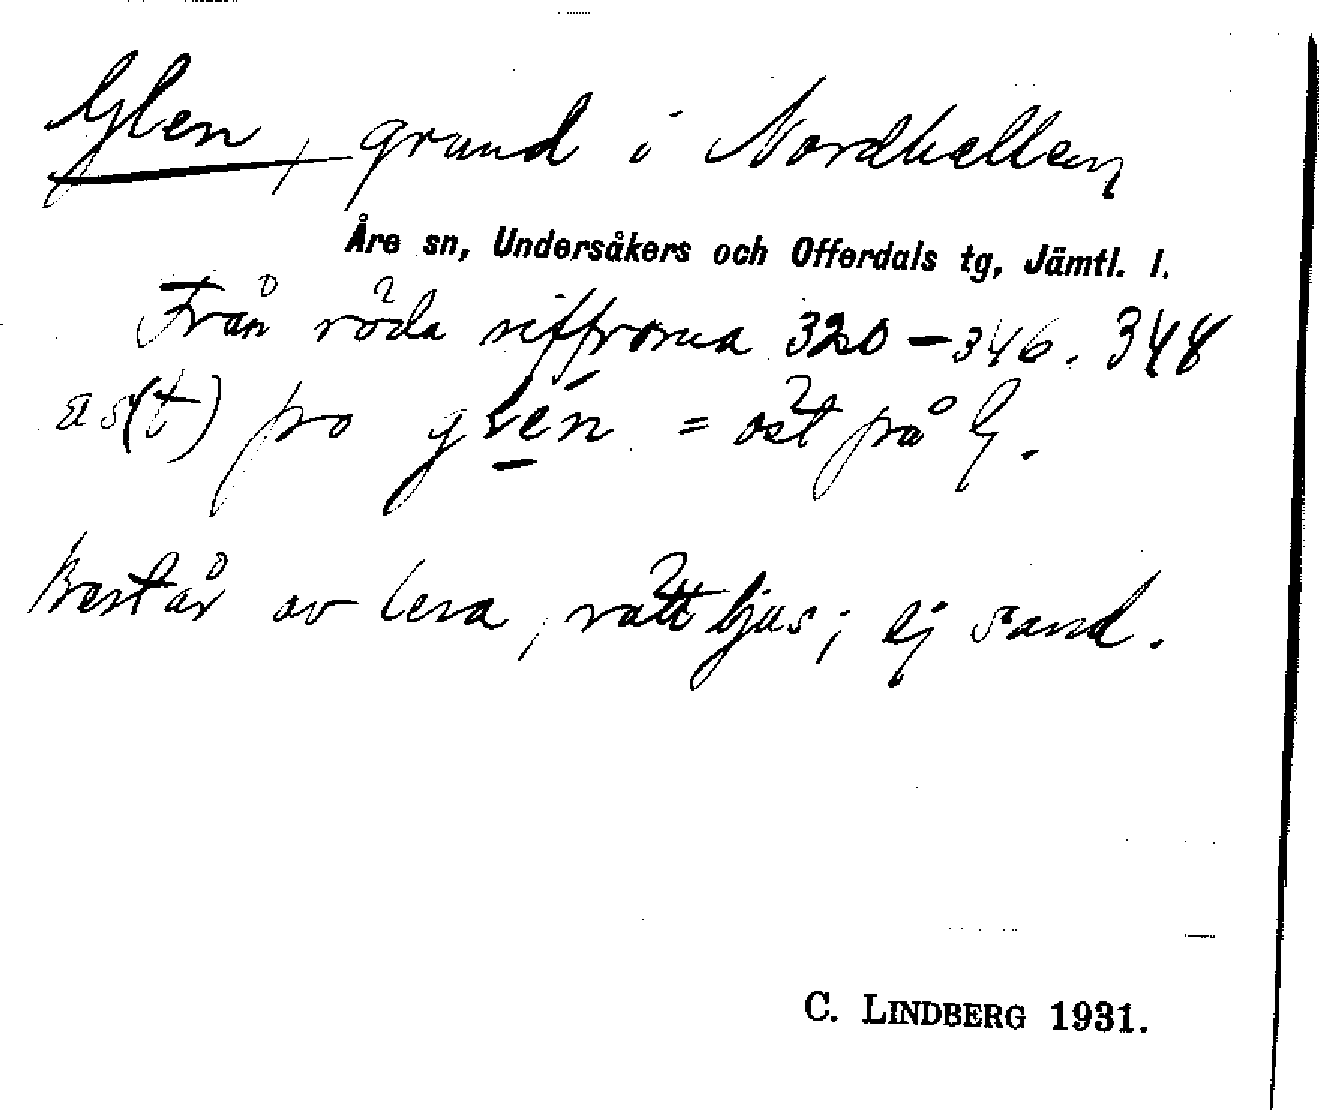 Glen, grund i Nordhallen
Åre sn, Undersåkers och Offerdals tg, Jämtl. l.
Från röda siffrorna 320–346. 348
as(t) po glen = öst på G.
Består av lera, rätt ljus; ej sand.
C. LINDBERG 1931.